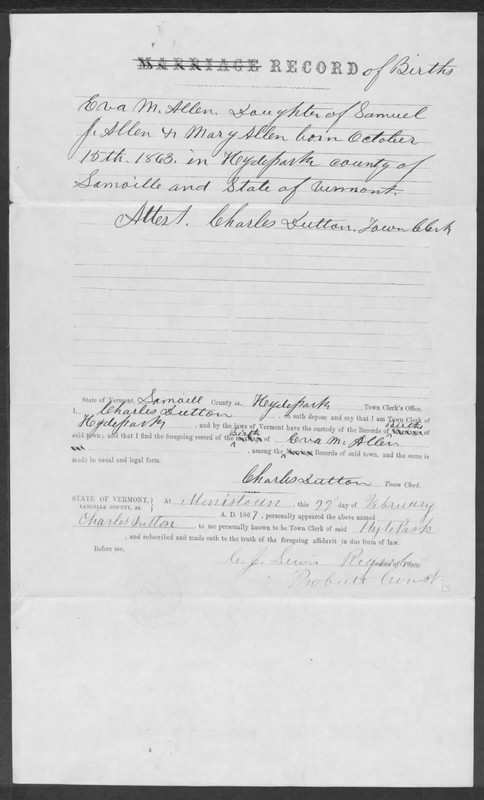 MARRIAGE RECORD of Births
Eva M. Allen. Daughter of Samuel
J. Allen & Mary Allen born October
15th. 1863. in Hydepark county of
Lamoille and State of Vermont.
Attest. Charles Dutton. Town Clerk
State of Vermont, Lamoill County ss. Hydepark Town Clerk's Office.
I, Charles Dutton, on oath depose and say that I am Town Clerk of
Hydepark, and by the laws of Vermont have the custody of the Records of Births of
said town; and that I find the foregoing record of the Birth of Eva M. Allen
, among the Records of said town, and the same is
made in usual and legal form.
Charles Dutton Town Clerk.
STATE OF VERMONT, } At Morristown, this 22d day of February
LAMOILLE COUNTY, ss. } A. D. 1867, personally appeared the above named
Charles Dutton to me personally known to be Town Clerk of said Hyde Park
, and subscribed and made oath to the truth of the foregoing affidavit in due form of law.
Before me, C. J. Lewis Register
Probate Court